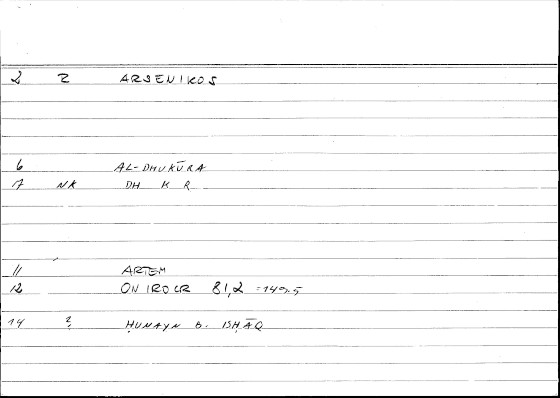 2 Z ARSENIKOS
6 AL-DHUKŪRA
7 NK DH K R
11 ARTEM
12 ONIROCR 81,2 =149.5
14 ? ḤUNAYN B. ISḤĀQ